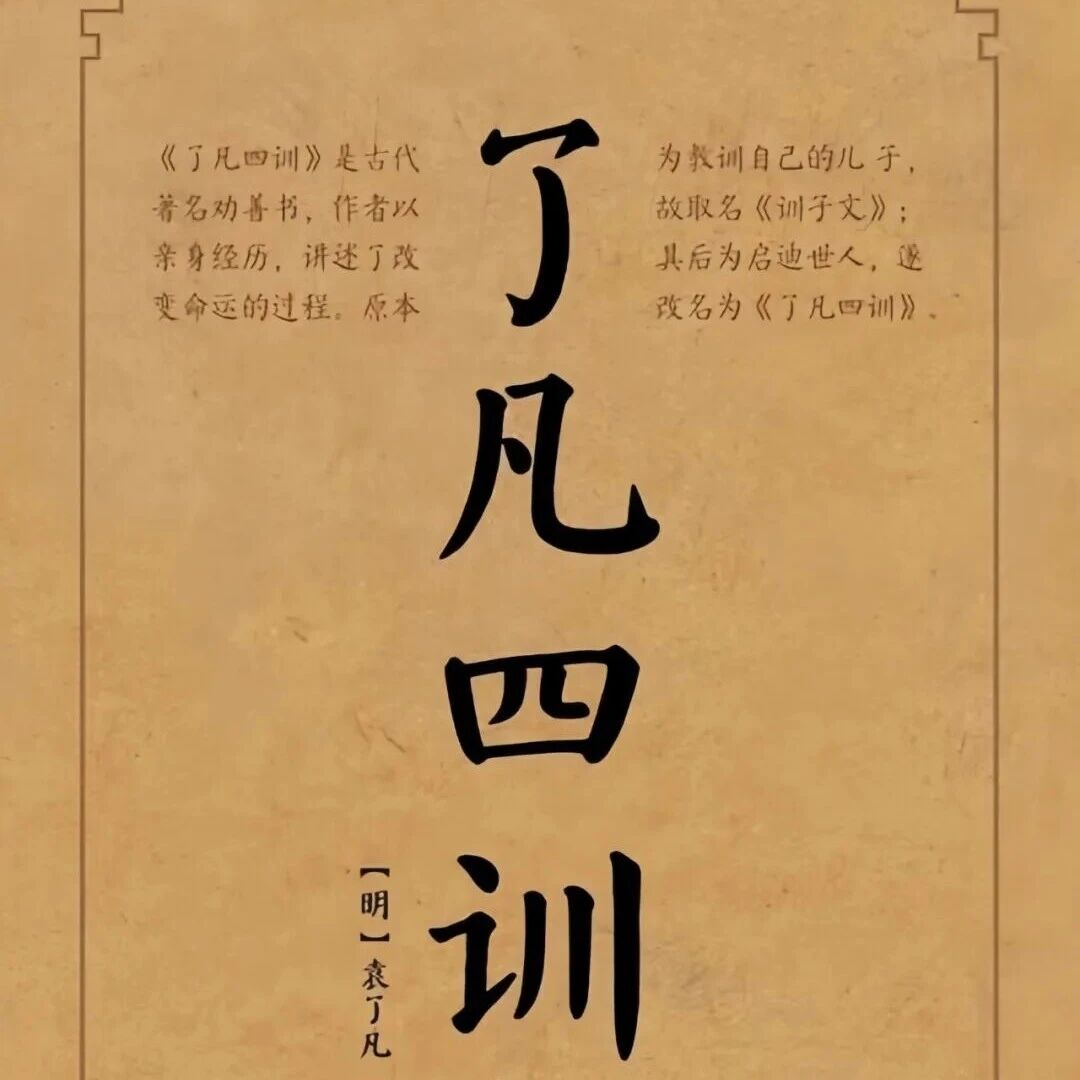 《了凡四训》是古代
著名劝善书，作者以
亲身经历，讲述了改
变命运的过程。原本
为教训自己的儿子，
故取名《训子文》；
其后为启迪世人，遂
改名为《了凡四训》。
了凡四训
【明】袁了凡